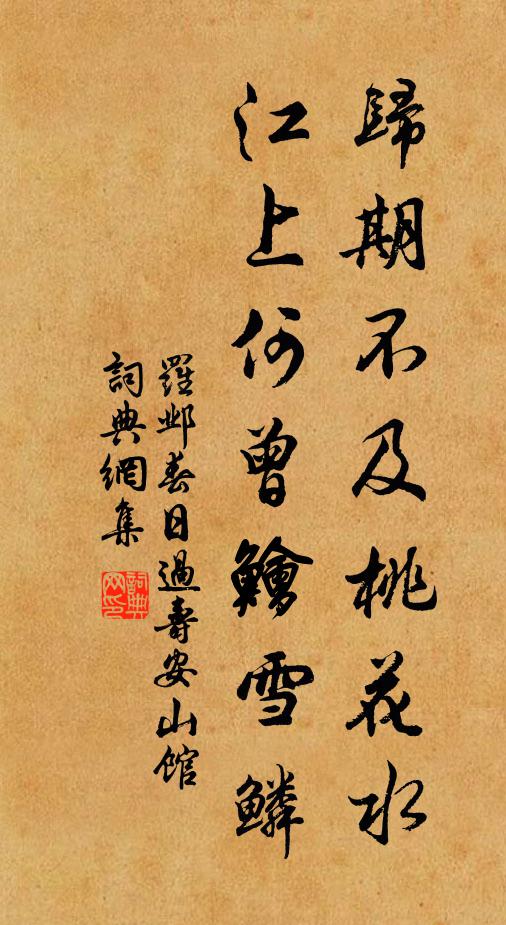 歸期不及桃花水
江上何曾鱠雪鱗
羅邺春日過壽安山馆
詞典網集
詞典
网印